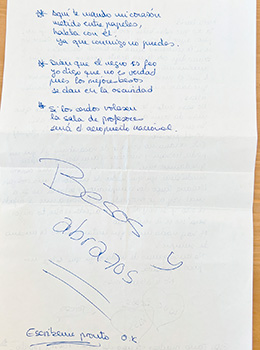 * Aquí te mando mi corazón
metido entre papeles,
habla con él,
ya que conmigo no puedes.
* Dicen que el negro es feo
yo digo que no es verdad
pues los mejores besos
se dan en la oscuridad
* Si los cerdos volasen
la sala de profesores
sería el aeropuerto nacional.
Besos y
abrazos
Escríbeme pronto O.K